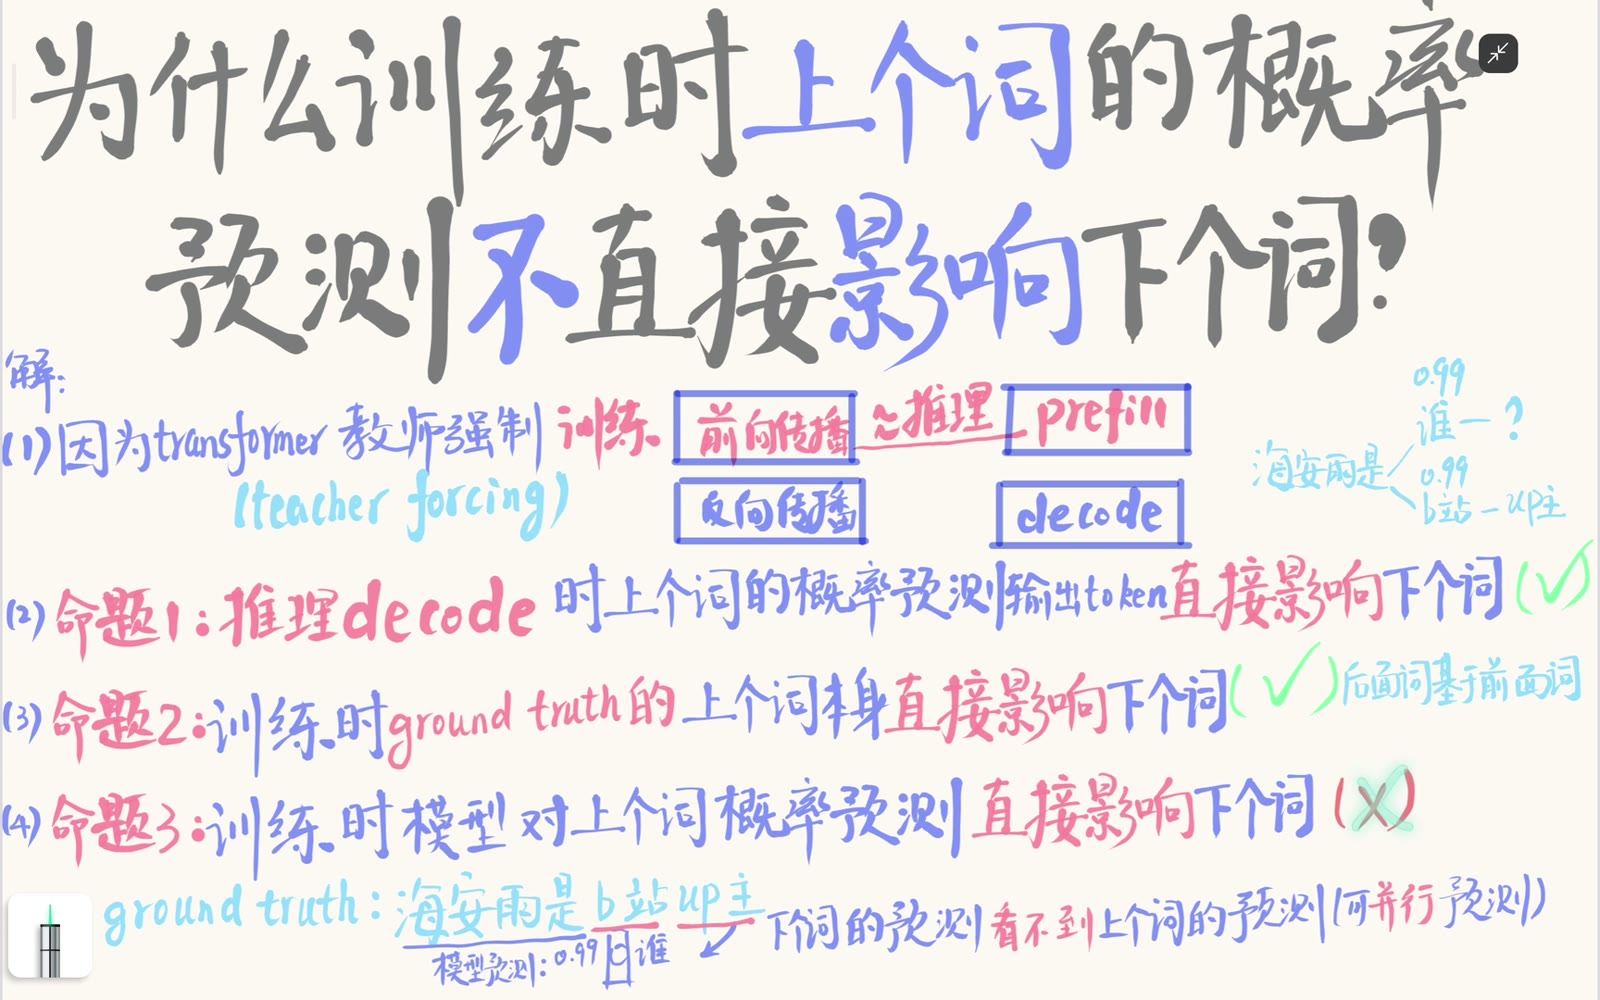 为什么训练时上个词的概率
预测不直接影响下个词?
解:
(1)因为transformer教师强制 训练 前向传播 ≈推理 prefill
(teacher forcing) 反向传播 decode
海安雨是
0.99
谁—?
0.99
b站—up主
(2)命题1:推理decode时上个词的概率预测输出token直接影响下个词(✓)
(3)命题2:训练时ground truth的上个词本身直接影响下个词(✓)后面词基于前面词
(4)命题3:训练时模型对上个词概率预测直接影响下个词(X)
ground truth:海安雨是b站up主 下个词的预测看不到上个词的预测(可并行预测)
模型预测:0.99 谁